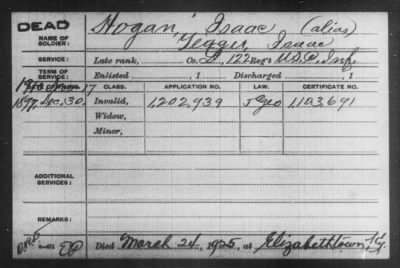 DEAD
NAME OF SOLDIER: Hogan, Isaac (alias)
Isaac
SERVICE: Late rank, Co. 122 Reg't U.S.C. Inf.
TERM OF SERVICE: Enlisted , 1 Discharged , 1
CLASS. APPLICATION NO. LAW. CERTIFICATE NO.
1897, Dec, 30, Invalid, 1,202,939 1103,691
Widow,
Minor,
ADDITIONAL SERVICES:
REMARKS:
Died March 24, 1925, at Elizabethtown, Ky.